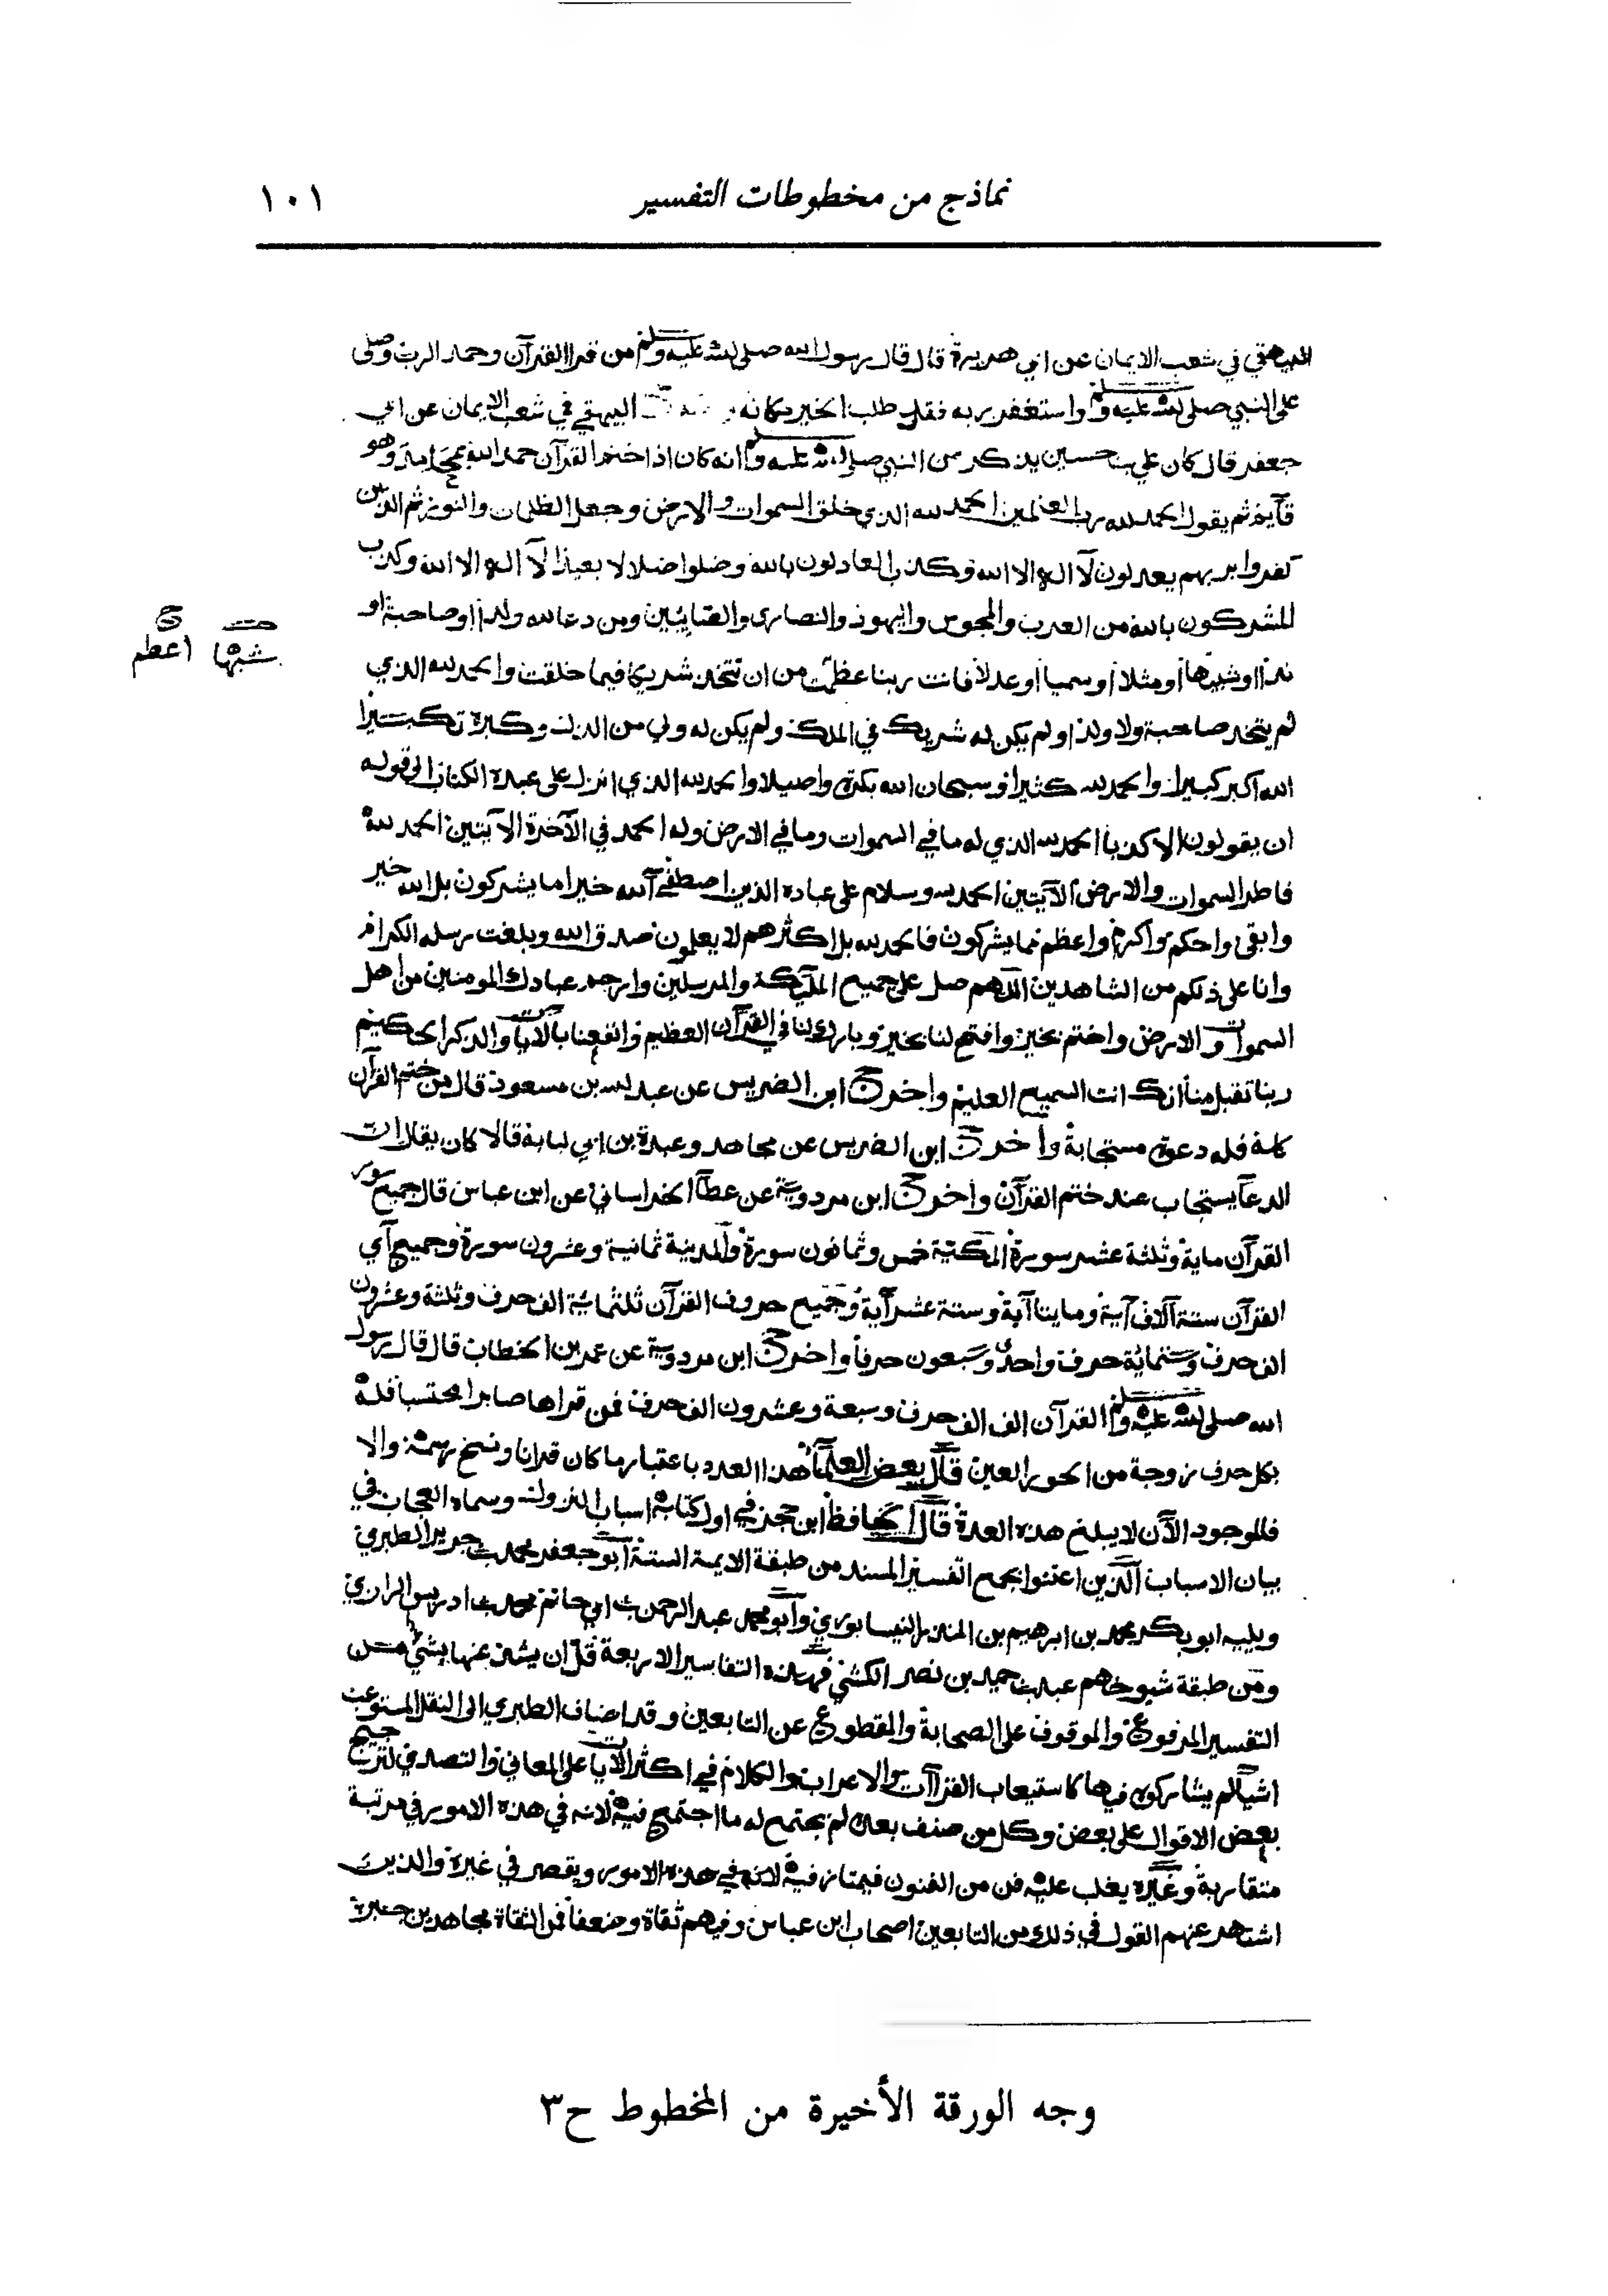 نماذج من مخطوطات التفسير ١٠١
البيهقي في شعب الايمان عن ابي هريرة قال قال رسول الله صلى الله عليه وسلم من قرا القرآن وحمد الرب وصلى
على النبي صلى الله عليه وسلم واستغفر ربه فقد طلب الخير مكانه البيهقي في شعب الايمان عن ابي
جعفر قال كان علي بن حسين يذكر من النبي صلى الله عليه وسلم انه كان اذا ختم القرآن حمد الله بمحامد وهو
قآيم ثم يقول الحمد لله رب العلمين الحمد لله الذي خلق السموات والارض وجعل الظلمات والنور ثم الذين
كفروا بربهم يعدلون لآ اله الا الله وكذب العادلون بالله وضلوا ضلالا بعيدا لآ اله الا الله وكذب
المشركون بالله من العرب والمجوس واليهود والنصارى والصابئين ومن دعا لله ولدا او صاحبة او
شبها اعظم
ندا او شبيها او مثلا او سميا او عدلا فانت ربنا عظمت من ان تتخذ شريكا فيما خلقت والحمد لله الذي
لم يتخذ صاحبة ولا ولدا ولم يكن له شريك في الملك ولم يكن له ولي من الذل وكبره تكبيرا
الله اكبر كبيرا والحمد لله كثيرا وسبحان الله بكرة واصيلا والحمد لله الذي انزل على عبده الكتاب الى قوله
ان يقولون الا كذبا الحمد لله الذي له ما في السموات وما في الارض وله الحمد في الآخرة الآيتين الحمد لله
فاطر السموات والارض الآيتين الحمد لله وسلام على عباده الذين اصطفى آلله خير اما يشركون بل الله خير
وابقى واحكم واكرم واعظم مما يشركون فالحمد لله بل اكثرهم لا يعلمون صدق الله وبلغت رسله الكرام
وانا على ذلكم من الشاهدين اللهم صل على جميع الملآيكة والمرسلين وارحم عبادك المومنين من اهل
السموات والارض واختم بخير وافتح لنا بخير وبارك لنا في القرآن العظيم وانفعنا بالآيات والذكر الحكيم
ربنا تقبل منا انك انت السميع العليم واخرج ابن الضريس عن عبد الله بن مسعود قال من ختم القرآن
كله فله دعوة مستجابة واخرج ابن الضريس عن مجاهد وعبدة بن ابي لبابة قالا كان يقال ان
الدعآ يستجاب عند ختم القرآن واخرج ابن مردوية عن عطآ الخراساني عن ابن عباس قال جميع سور
القرآن ماية وثلثة عشر سورة المكية خمس وثمانون سورة والمدينة ثمانية وعشرون سورة وجميع آي
القرآن ستة آلاف آية ومايتا آية وستة عشر آية وجميع حروف القرآن ثلثماية الف حرف وثلثة وعشرون
الف حرف وستماية حرف واحد وسبعون حرفا واخرج ابن مردوية عن عمر بن الخطاب قال قال رسول
الله صلى الله عليه وسلم القرآن الف الف حرف وسبعة وعشرون الف حرف فمن قراها صابرا محتسبا فله
بكل حرف زوجة من الحور العين قال بعض العلمآ هذا العدد باعتبار ما كان قرانا ونسخ رسمه والا
فالموجود الآن لا يبلغ هذه العدة قال الحافظ ابن حجر في اول كتابه اسباب النزول وسماه العجاب في
بيان الاسباب الذين اعتنوا بجمع التفسير المسند من طبقة الايمة الستة ابو جعفر محمد بن جرير الطبري
ويليه ابو بكر محمد بن ابرهيم بن المنذر النيسابوري وابو محمد عبد الرحمن بن ابي حاتم محمد بن ادريس الرازي
ومن طبقة شيوخهم عبد بن حميد بن نصر الكشي فهذه التفاسير الاربعة قل ان يشذ عنها شيء من
التفسير المرفوع والموقوف على الصحابة والمقطوع عن التابعين وقد اضاف الطبري الى النقل المستوعب
اشيآ لم يشاركوه فيها كاستيعاب القراآت والاعراب والكلام في اكثر الآيات على المعاني والتصدي لترجيح
بعض الاقوال على بعض وكل من صنف بعده لم يجتمع له ما اجتمع فيه لانه في هذه الامور في مرتبة
متقاربة وغيره يغلب عليه فن من الفنون فيمتاز فيه لانه في هذه الامور ويقصر في غيره والذين
اشتهر عنهم القول في ذلك من التابعين اصحاب ابن عباس وفيهم ثقاة وضعفا فمن الثقاة مجاهد بن جبر
وجه الورقة الأخيرة من المخطوط ح٣